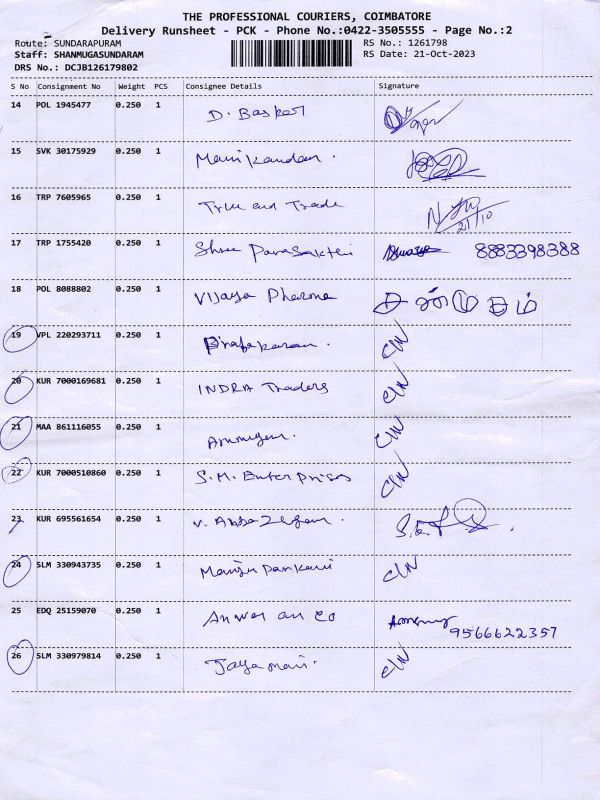 THE PROFESSIONAL COURIERS, COIMBATORE
Delivery Runsheet - PCK - Phone No.:0422-3505555 - Page No.:2
Route: SUNDARAPURAM RS No.: 1261798
Staff: SHANMUGASUNDARAM RS Date: 21-Oct-2023
DRS No.: DCJB126179802
S No Consignment No Weight PCS Consignee Details Signature
14 POL 1945477 0.250 1 D. Basker
15 SVK 30175929 0.250 1 Manikandan.
16 TRP 7605965 0.250 1 True and Trade 21/10
17 TRP 1755420 0.250 1 Shree Parasakthi 8883398388
18 POL 8088802 0.250 1 Vijaya Pharma
19 VPL 220293711 0.250 1 C/N
20 KUR 7000169681 0.250 1 INDRA Traders C/N
21 MAA 861116055 0.250 1 C/N
22 KUR 7000510860 0.250 1 S.M. Enterprises C/N
23 KUR 695561654 0.250 1
24 SLM 330943735 0.250 1 C/N
25 EDQ 25159070 0.250 1 Anwer an co 9566622357
26 SLM 330979814 0.250 1 Jayamani. C/N